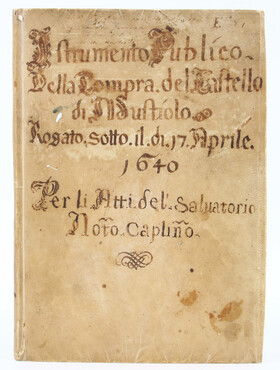 Istrumento Publico
Della Compra del Castello
di Mustiolo
Rogato sotto il di 17 Aprile.
1640
Per li Atti del Salvatorio
Notõ Caplinõ